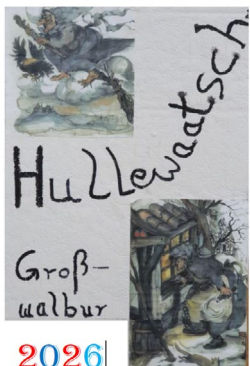 Hullewaatsch
Groß-
walbur
2026